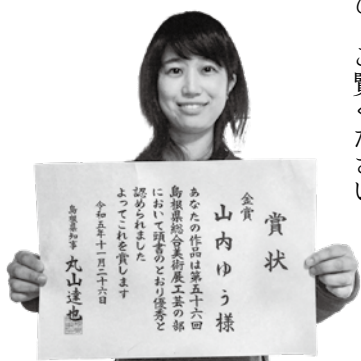 ご覧ください
賞状
金賞
山内ゆう様
あなたの作品は第五十六回
島根県総合美術展工芸の部
において頭書のとおり優秀と
認められました
よってこれを賞します
令和五年十一月二十六日
島根県知事 丸山達也